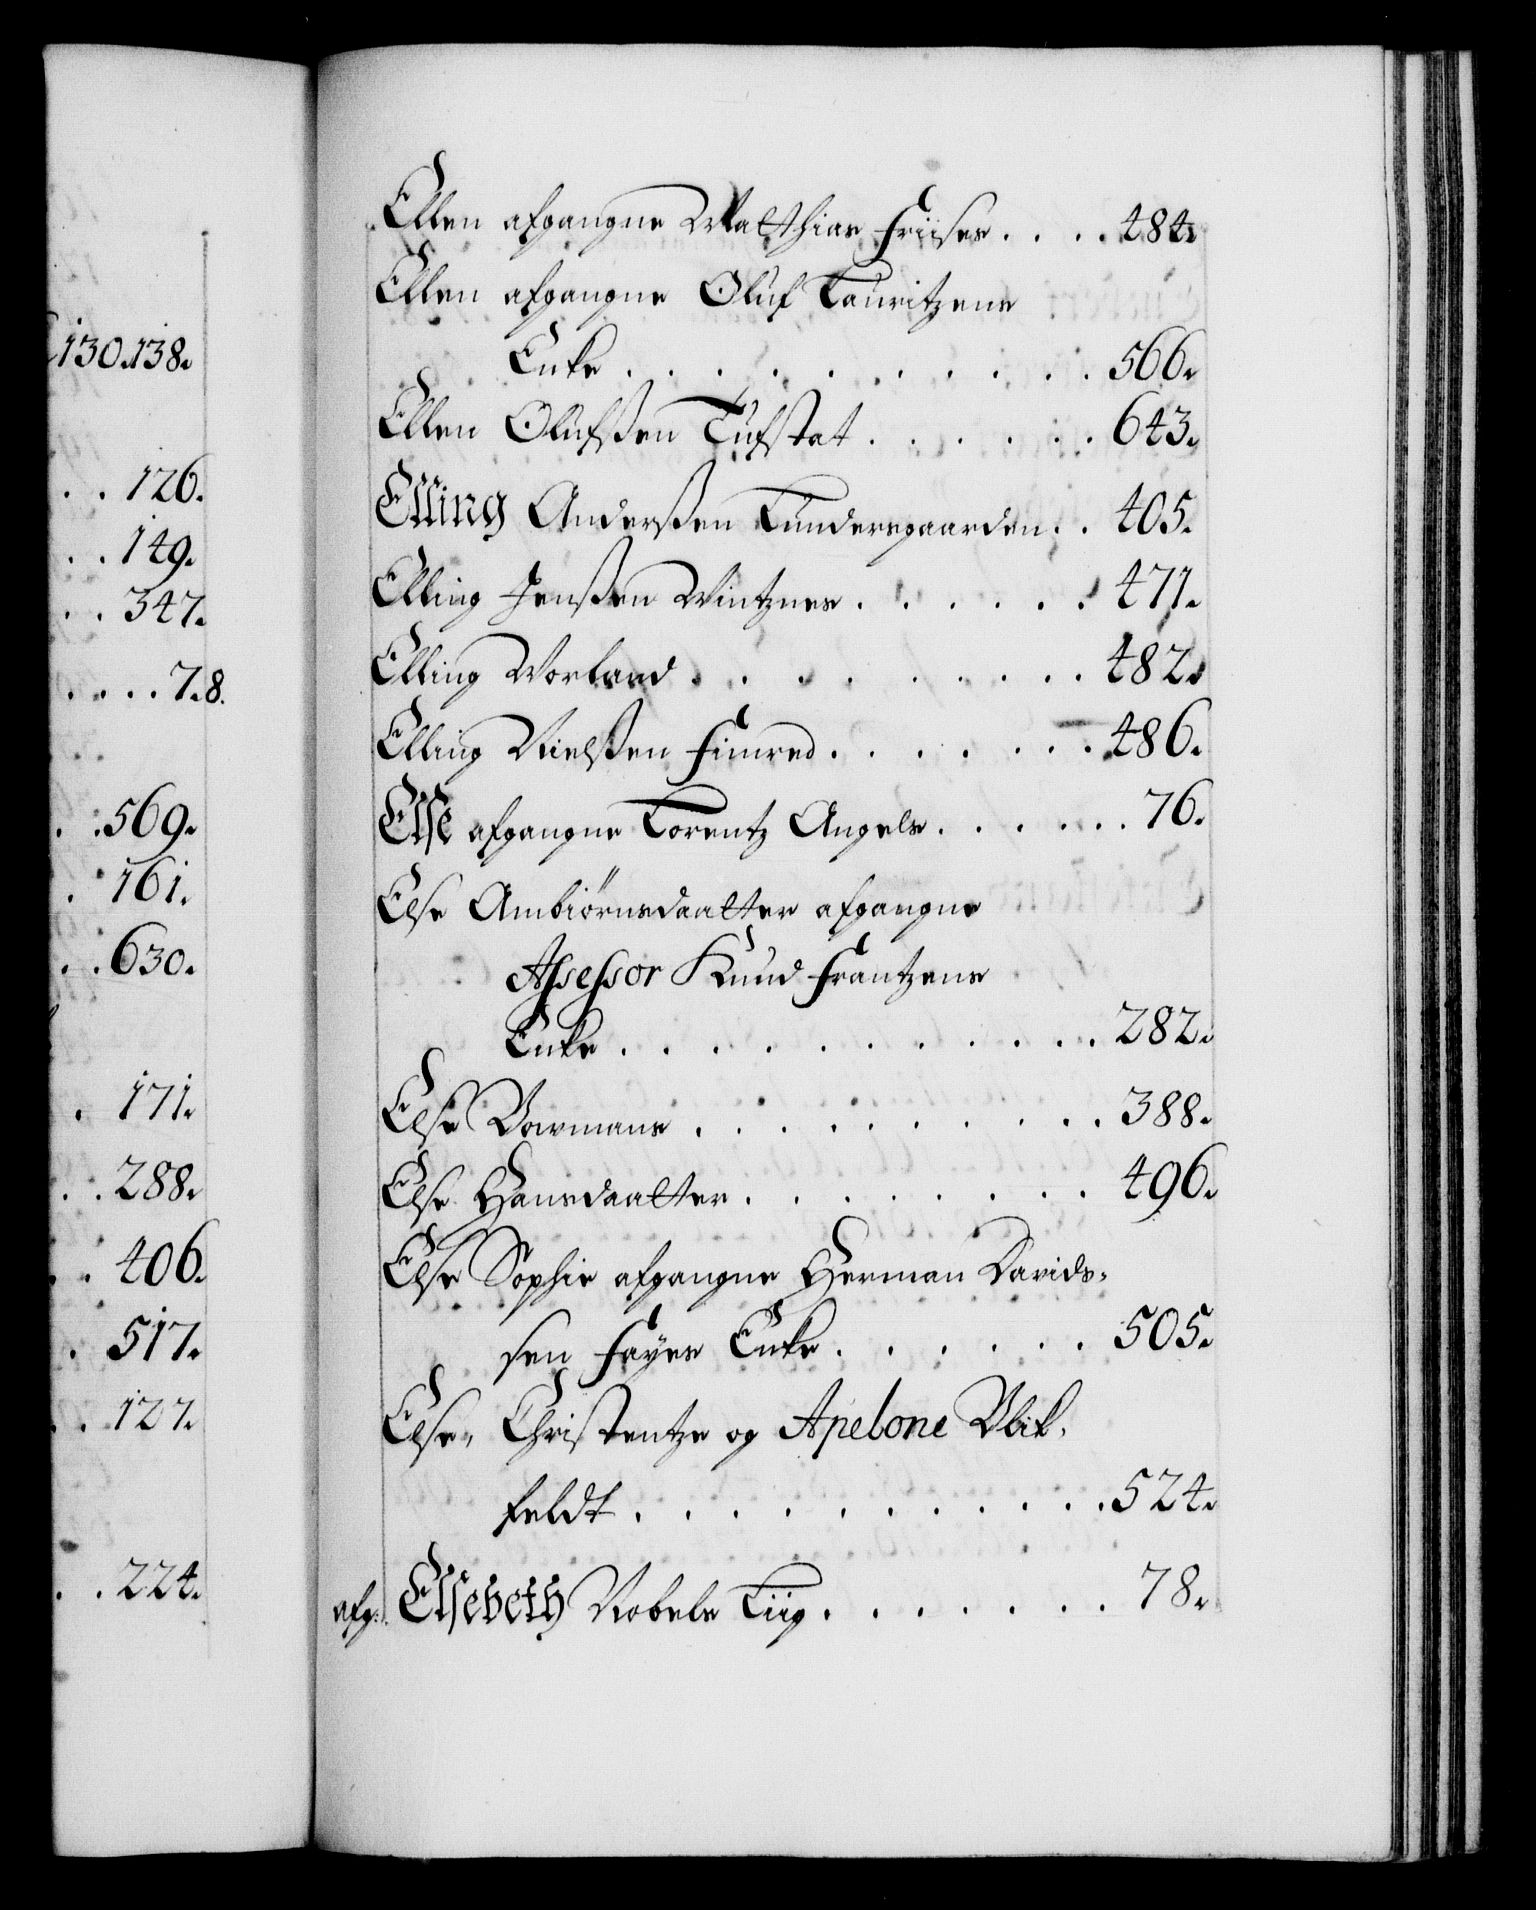 130.138.
126.
149.
347.
7.8.
569.
161.
630.
171.
288.
406.
517.
127.
224.
Ellen afgangne Matthias Friises . . . . 484.
Ellen afgangne Oluf Lauritzens
Enke . . . . . . . . . 566.
Ellen Olufssen Tufstat . . . . . 643.
Elling Anderssen Tundersgaarden . . 405.
Elling Jenssen Wintznes . . . . . 471.
Elling Vorland . . . . . . . . 482.
Elling Nielssen Fimred . . . . . . 486.
Else afgangne Lorentz Angels . . . . . . 76.
Else Ambiørnsdaatter afgangne
Assessor Knud Frantzens
Enke . . . . . . . . . . 282.
Else Dormans . . . . . . . . . 388.
Else Hansdaatter . . . . . . . 496.
Else Sophie afgangne Herman Davids-
sen Fayes Enke . . . . . . 505.
Else, Christentze og Apelone Ulik-
feldt . . . . . . . . . . 524.
afg: Elsebeth Nobels Tiig . . . . . . 78.